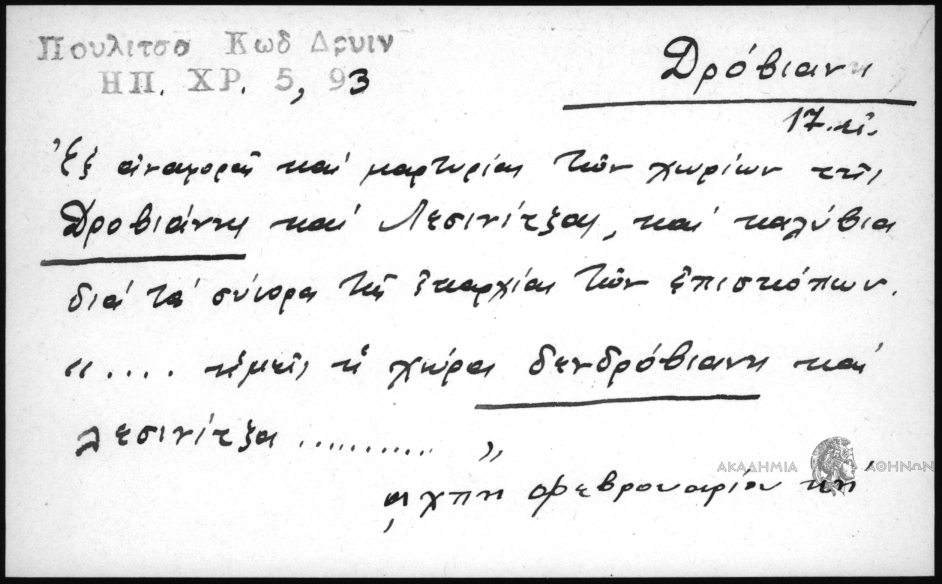 Πουλιτσο Κωδ Δρυιν
ΗΠ. ΧΡ. 5, 93
Δρόβιανη
17. αἰ.
Ἐξ ἀναφορᾶς καὶ μαρτυρίας τῶν χωρίων τῆς
Δροβιάνης καὶ Λεσινίτζας, καὶ καλύβια
διὰ τὰ σύνορα τῆς ἐπαρχίας τῶν ἐπισκόπων.
«.... ἡμεῖς ἡ χώρα δενδρόβιανη καὶ
λεσινίτζα .......... »
͵αχπη Φεβρουαρίου κη΄
ΑΚΑΔΗΜΙΑ ΑΘΗΝΩΝ